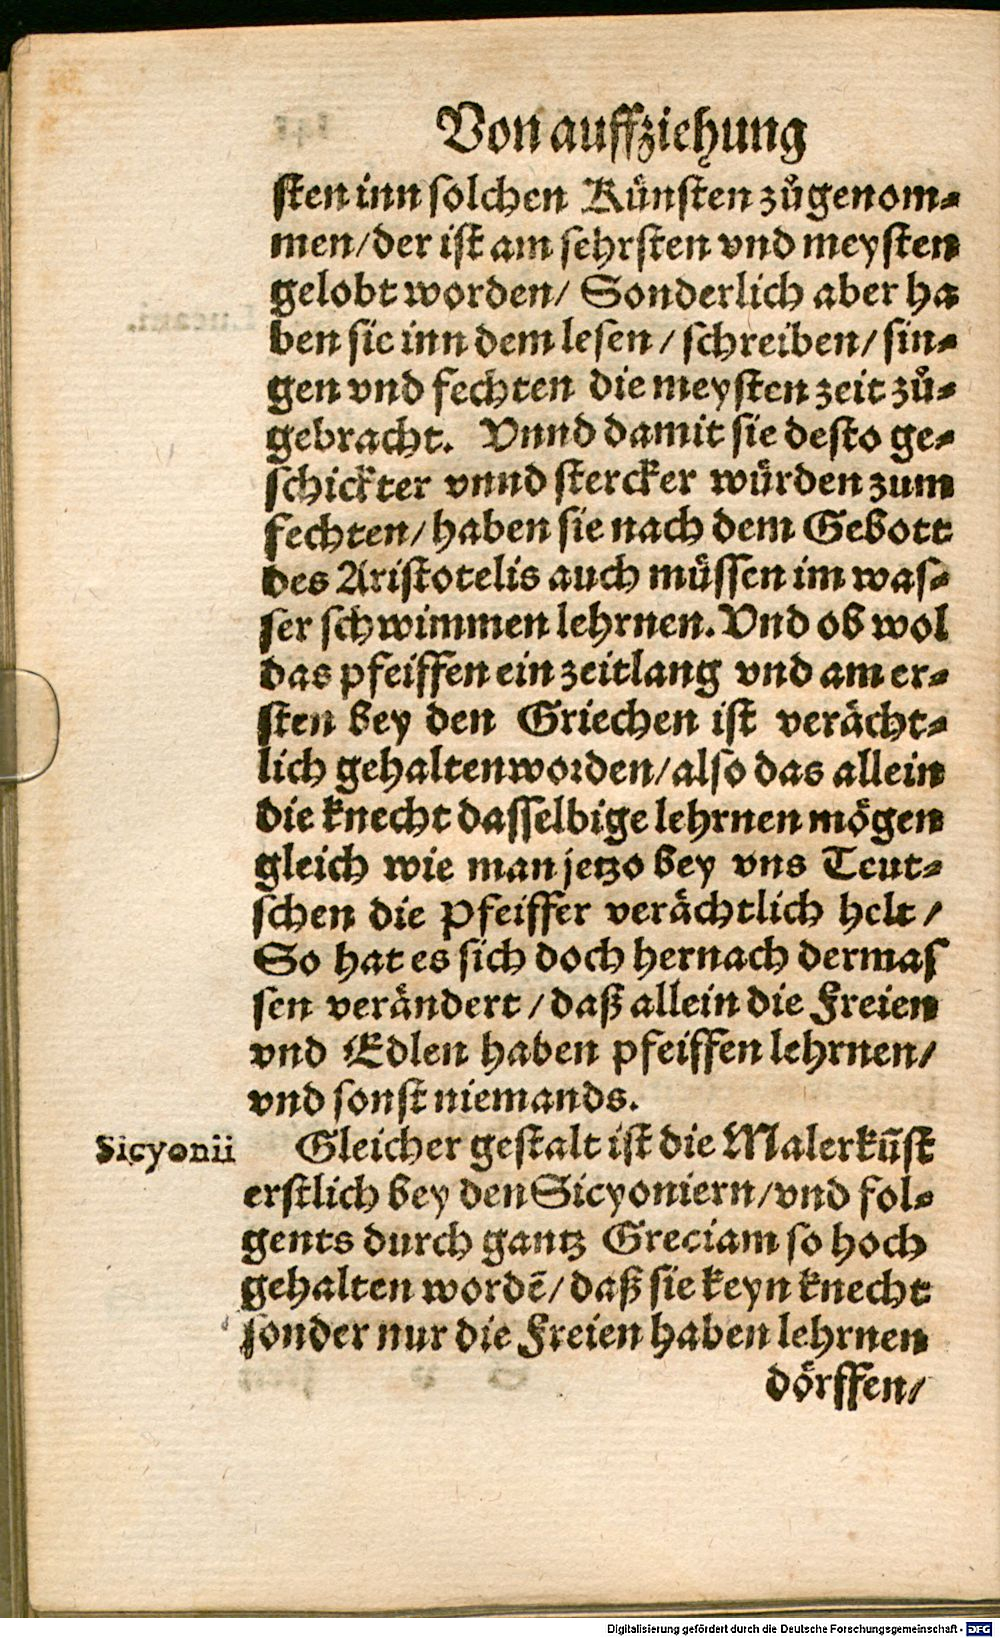 Von auffziehung
sten inn solchen Künsten zůgenom-
men/der ist am sehrsten vnd meysten
gelobt worden/ Sonderlich aber ha
ben sie inn dem lesen/schreiben/sin-
gen vnd fechten die meysten zeit zů-
gebracht. Vnnd damit sie desto ge-
schickter vnnd stercker würden zum
fechten/haben sie nach dem Gebott
des Aristotelis auch müssen im was-
ser schwimmen lehrnen. Vnd ob wol
das pfeiffen ein zeitlang vnd am er-
sten bey den Griechen ist verächt-
lich gehalten worden/also das allein
die knecht dasselbige lehrnen mögen
gleich wie man jetzo bey vns Teut-
schen die Pfeiffer verächtlich helt/
So hat es sich doch hernach dermas
sen verändert/daß allein die Freien
vnd Edlen haben pfeiffen lehrnen/
vnd sonst niemands.
Sicyonii
Gleicher gestalt ist die Malerkũst
erstlich bey den Sicyoniern/vnd fol-
gents durch gantz Greciam so hoch
gehalten wordẽ/daß sie keyn knecht
sonder nur die Freien haben lehrnen
dörffen/
Digitalisierung gefördert durch die Deutsche Forschungsgemeinschaft - DFG